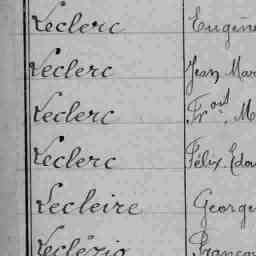 Leclerc Eugène
Leclerc Jean Mar
Leclerc Fr.oit M
Leclerc Félix Edou
Lecleire George
Leclézio Françoi